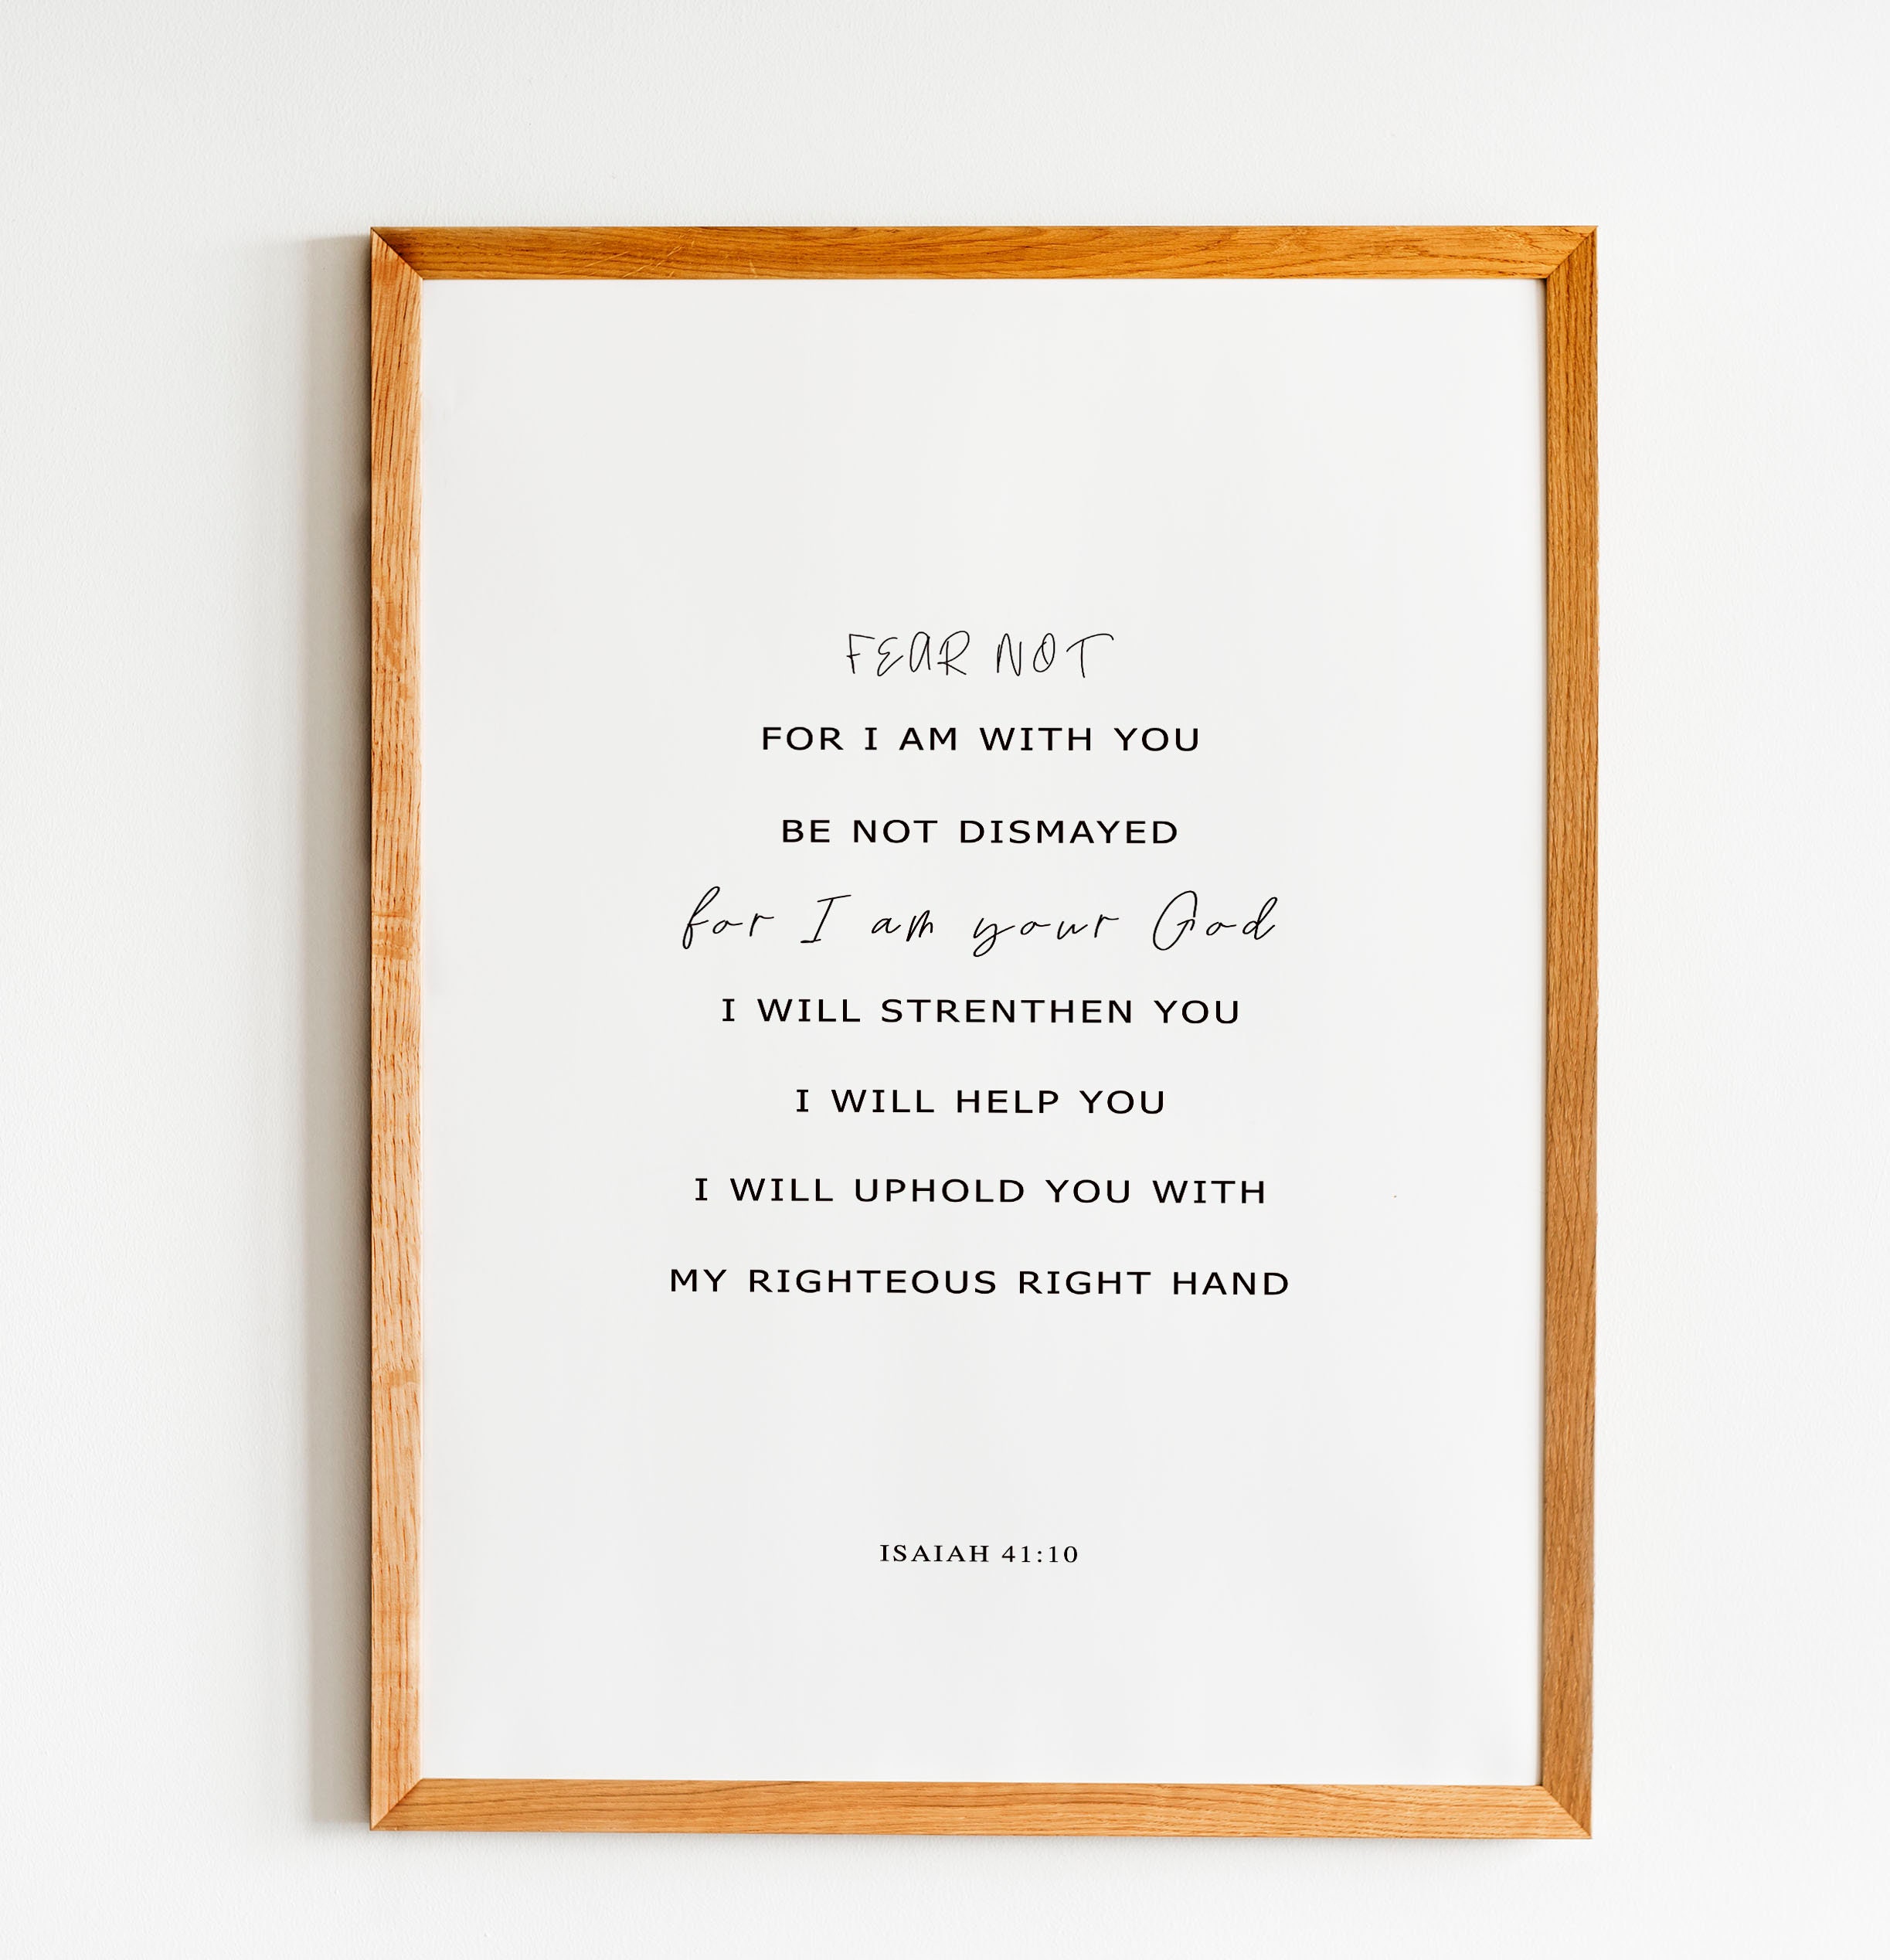 FEAR NOT
FOR I AM WITH YOU
BE NOT DISMAYED
for I am your God
I WILL STRENTHEN YOU
I WILL HELP YOU
I WILL UPHOLD YOU WITH
MY RIGHTEOUS RIGHT HAND
ISAIAH 41:10